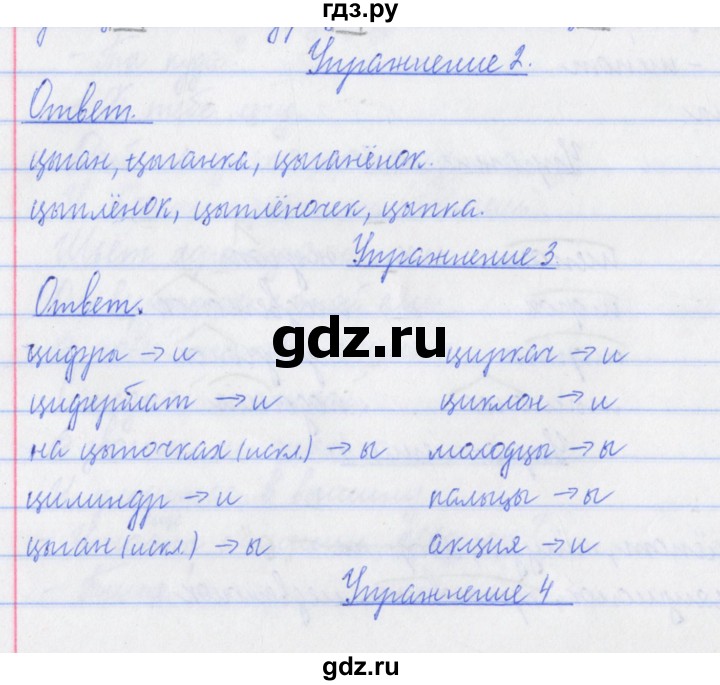 гдз.ру
Упражнение 2.
Ответ.
цыган, цыганка, цыганёнок.
цыплёнок, цыплёночек, цыпка.
Упражнение 3
Ответ.
цифры → и циркач → и
циферблат → и циклон → и
на цыпочках (искл.) → ы молодцы → ы
gdz.ru
цилиндр → и пальцы → ы
цыган (искл.) → ы акция → и
Упражнение 4
gdz.ru